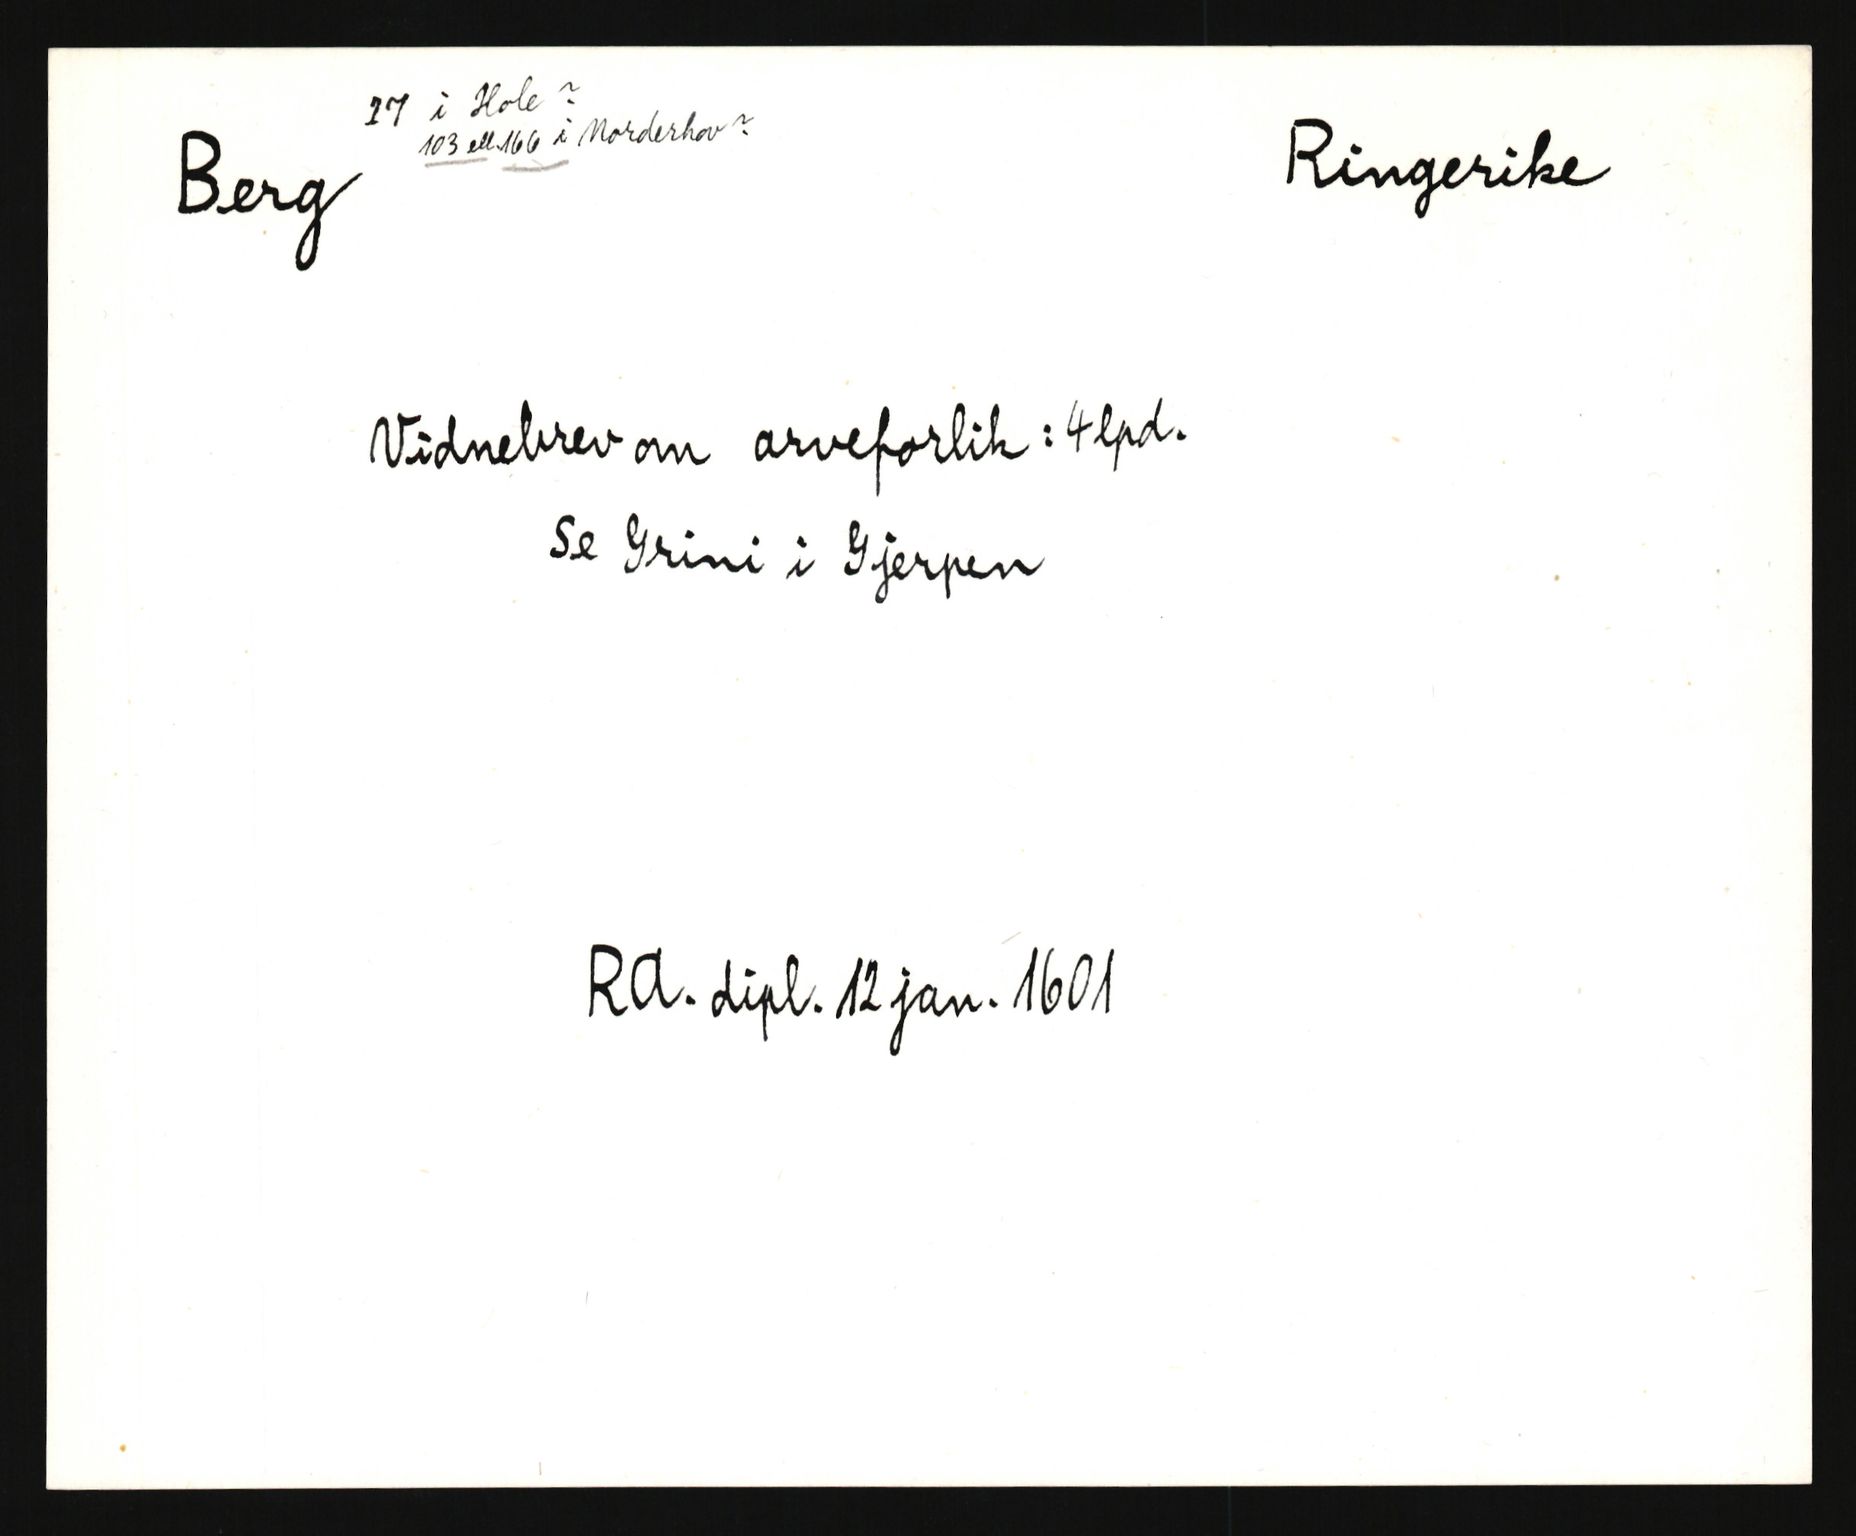 27 i Hole?
103 ell. 166 i Norderhov?
Berg
Ringerike
Vidnebrev om arveforlik: 4 lpd.
Se Grini i Gjerpen
RA. dipl. 12 jan. 1601